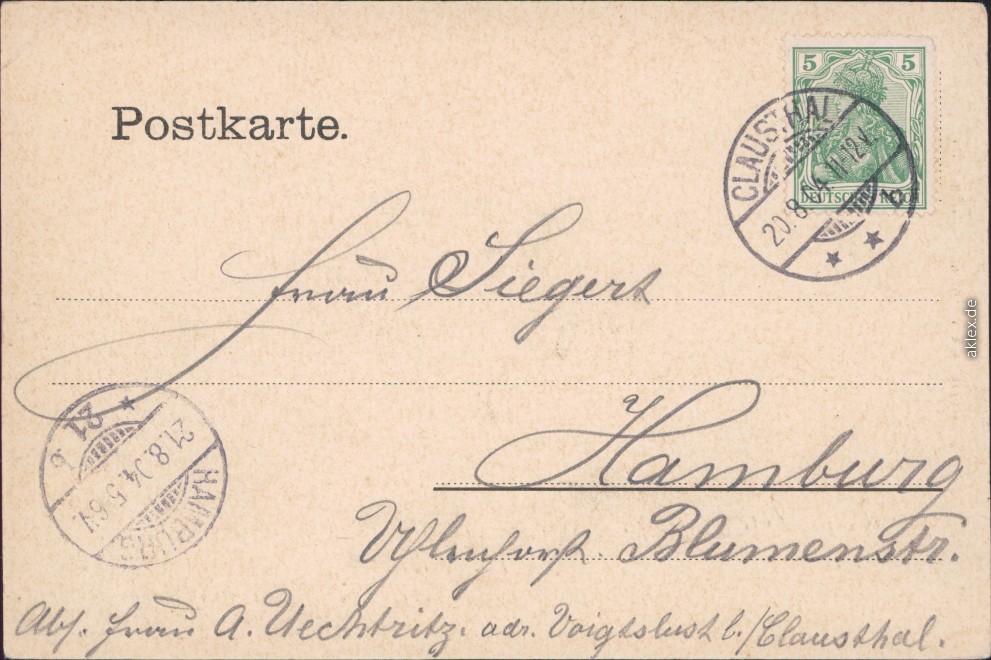 5 5
DEUTSCHES REICH
CLAUSTHAL
20.8.04.11-12V.
b
Postkarte.
Frau Siegert
Hamburg
Uhlenhorst Blumenstr.
Abs. Frau A. Uechtritz. adr. Voigtslust b./Clausthal.
HAMBURG
21.8.04.5-6V
21
aklex.de